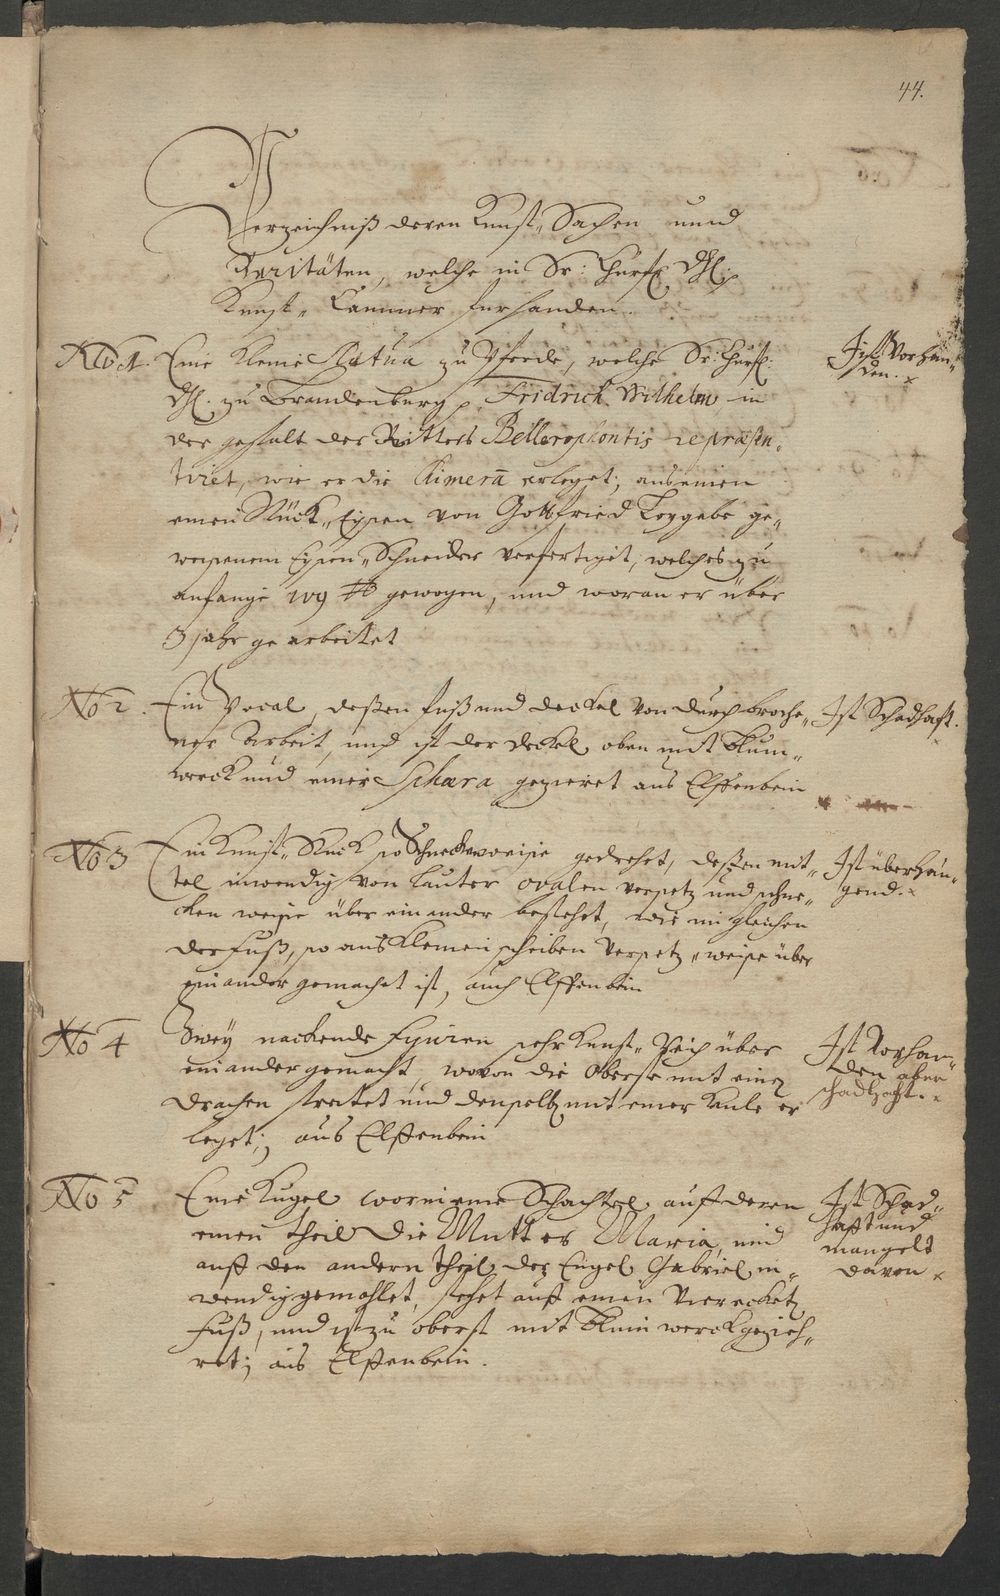 44.
Verzeichniß deren Kunst„ Sachen und
Raritäten, welche in Sr: Churfl. Dhl:
Kunst„ Cammer furhanden.
No 1. Eine kleine Statua zu Pferde, welche Sr: Churfl:
Dhl. zu Brandenburg Fridrich Wilhelm in
der gestalt des Ritters Bellerophontis repraesen„
tiret, wie er die Kimerā erleget, aus einen
einen Stück„ Eysen von Gottfried Leygebe ge„
wesenem Eysen„ Schneider verfertiget, welches zu
anfange ℔ gewogen, und woran er über
jahr gearbeitet
Ist Vorhan„
den. x
No 2. Ein Pocal, deßen fuß und deckel von durchbroche„
ner Arbeit, und ist der deckel oben mit Blum„
werck und einer Sphaera gezieret aus Elffenbein
Ist Schadhaft.
x
No 3 Ein Kunst„ Stück so Schneckenweise gedrehet, deßen mit„
tel inwendig von lauter ovalen versetz und schne„
cken weise über einander bestehet, wie imgleichen
der Fuß, so aus kleinen scheiben Versetz„ weise über
einander gemacht ist, auch Elffenbein
Ist überhan„
gend. x
No 4 Zwey nackende Figuren sehr Kunst„ Reich über
einander gemacht, wovon die Oberste mit einē
drachen streitet und denselben mit einer Keule er
leget; aus Elffenbein
Ist Vorhan„
den aber
schadhafft. x
No 5 Eine Kugel worin eine Schachtel auf deren
einen theil die Mutter Maria, und
auff den andern theil der Engel Gabriel in„
wendig gemahlet, stehet auff einen Viereckten
Fuß, und ist zu oberst mit Blumwerck gezieh„
ret; aus Elffenbein.
Ist Schad„
hafft und
mangelt
davon x